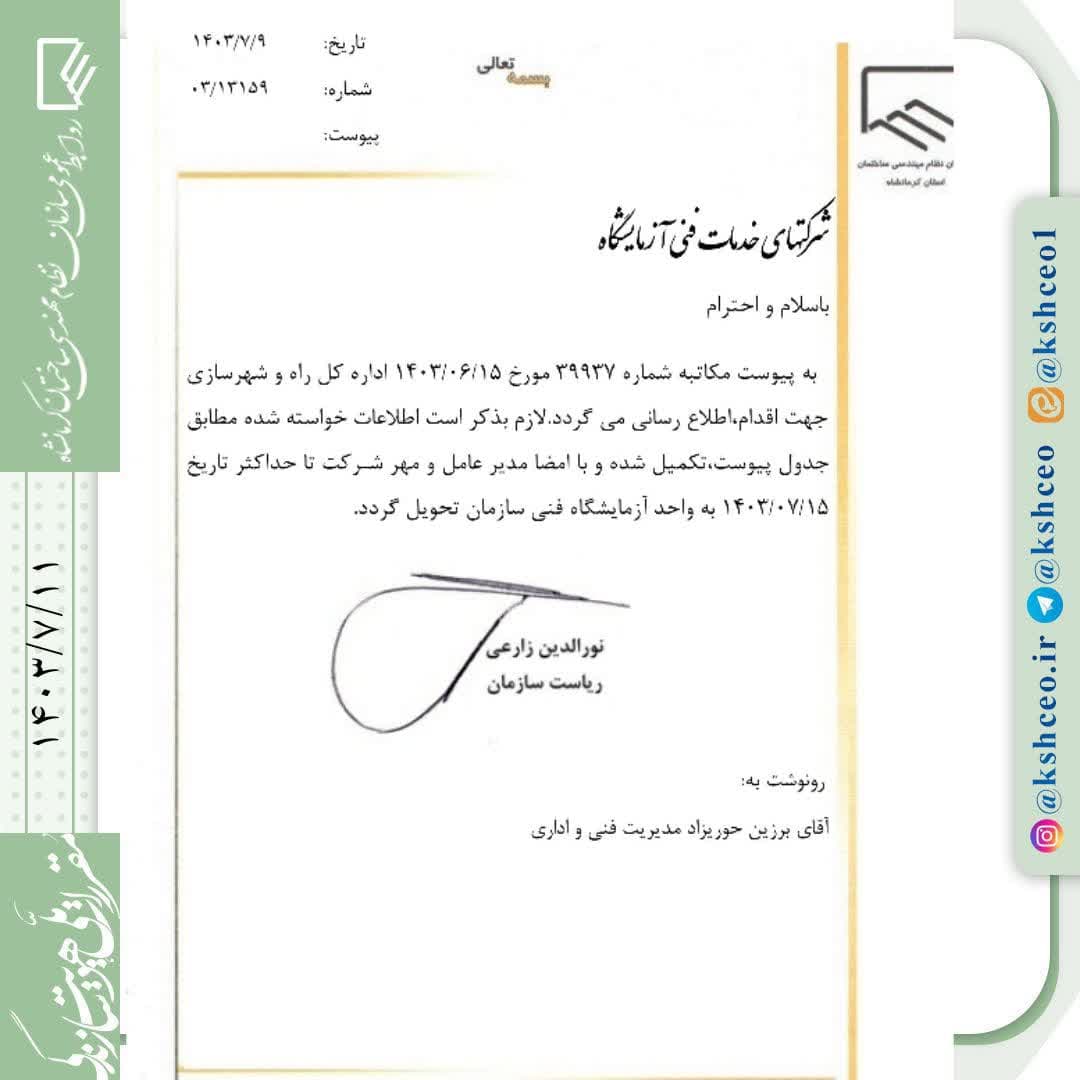 بسمه تعالی
تاریخ: ۱۴۰۳/۷/۹
شماره: ۰۳/۱۳۱۵۹
پیوست:
ان نظام مهندسی ساختمان
استان کرمانشاه
شرکتهای خدمات فنی آزمایشگاه
باسلام و احترام
به پیوست مکاتبه شماره ۳۹۹۳۷ مورخ ۱۴۰۳/۰۶/۱۵ اداره کل راه و شهرسازی
جهت اقدام،اطلاع رسانی می گردد.لازم بذکر است اطلاعات خواسته شده مطابق
جدول پیوست،تکمیل شده و با امضا مدیر عامل و مهر شرکت تا حداکثر تاریخ
۱۴۰۳/۰۷/۱۵ به واحد آزمایشگاه فنی سازمان تحویل گردد.
نورالدین زارعی
ریاست سازمان
رونوشت به:
آقای برزین حوریزاد مدیریت فنی و اداری
@kshceo.ir @kshceo @kshceo1
روابط عمومی سازمان نظام مهندسی ساختمان کرمانشاه
۱۴۰۳/۷/۱۱
مقررات ملی هویت سازندگی